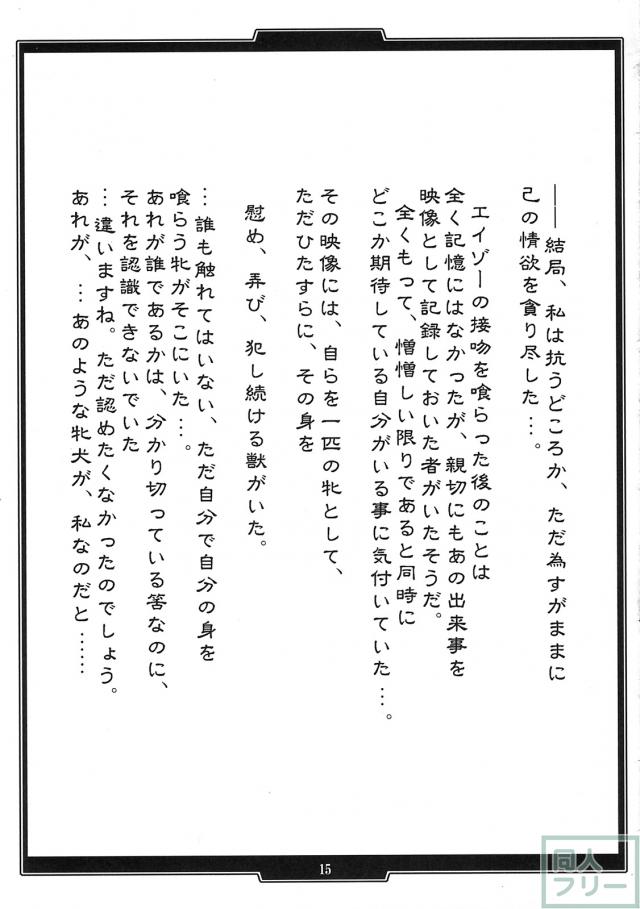 ――結局、私は抗うどころか、ただ為すがままに
己の情欲を貪り尽した…。
エイゾーの接吻を喰らった後のことは
全く記憶にはなかったが、親切にもあの出来事を
映像として記録しておいた者がいたそうだ。
全くもって、憎憎しい限りであると同時に
どこか期待している自分がいる事に気付いていた…。
その映像には、自らを一匹の牝として、
ただひたすらに、その身を
慰め、弄び、犯し続ける獣がいた。
…誰も触れてはいない、ただ自分で自分の身を
喰らう牝がそこにいた…。
あれが誰であるかは、分かり切っている筈なのに、
それを認識できないでいた
…違いますね。ただ認めたくなかったのでしょう。
あれが、…あのような牝犬が、私なのだと……
15
同人
フリー